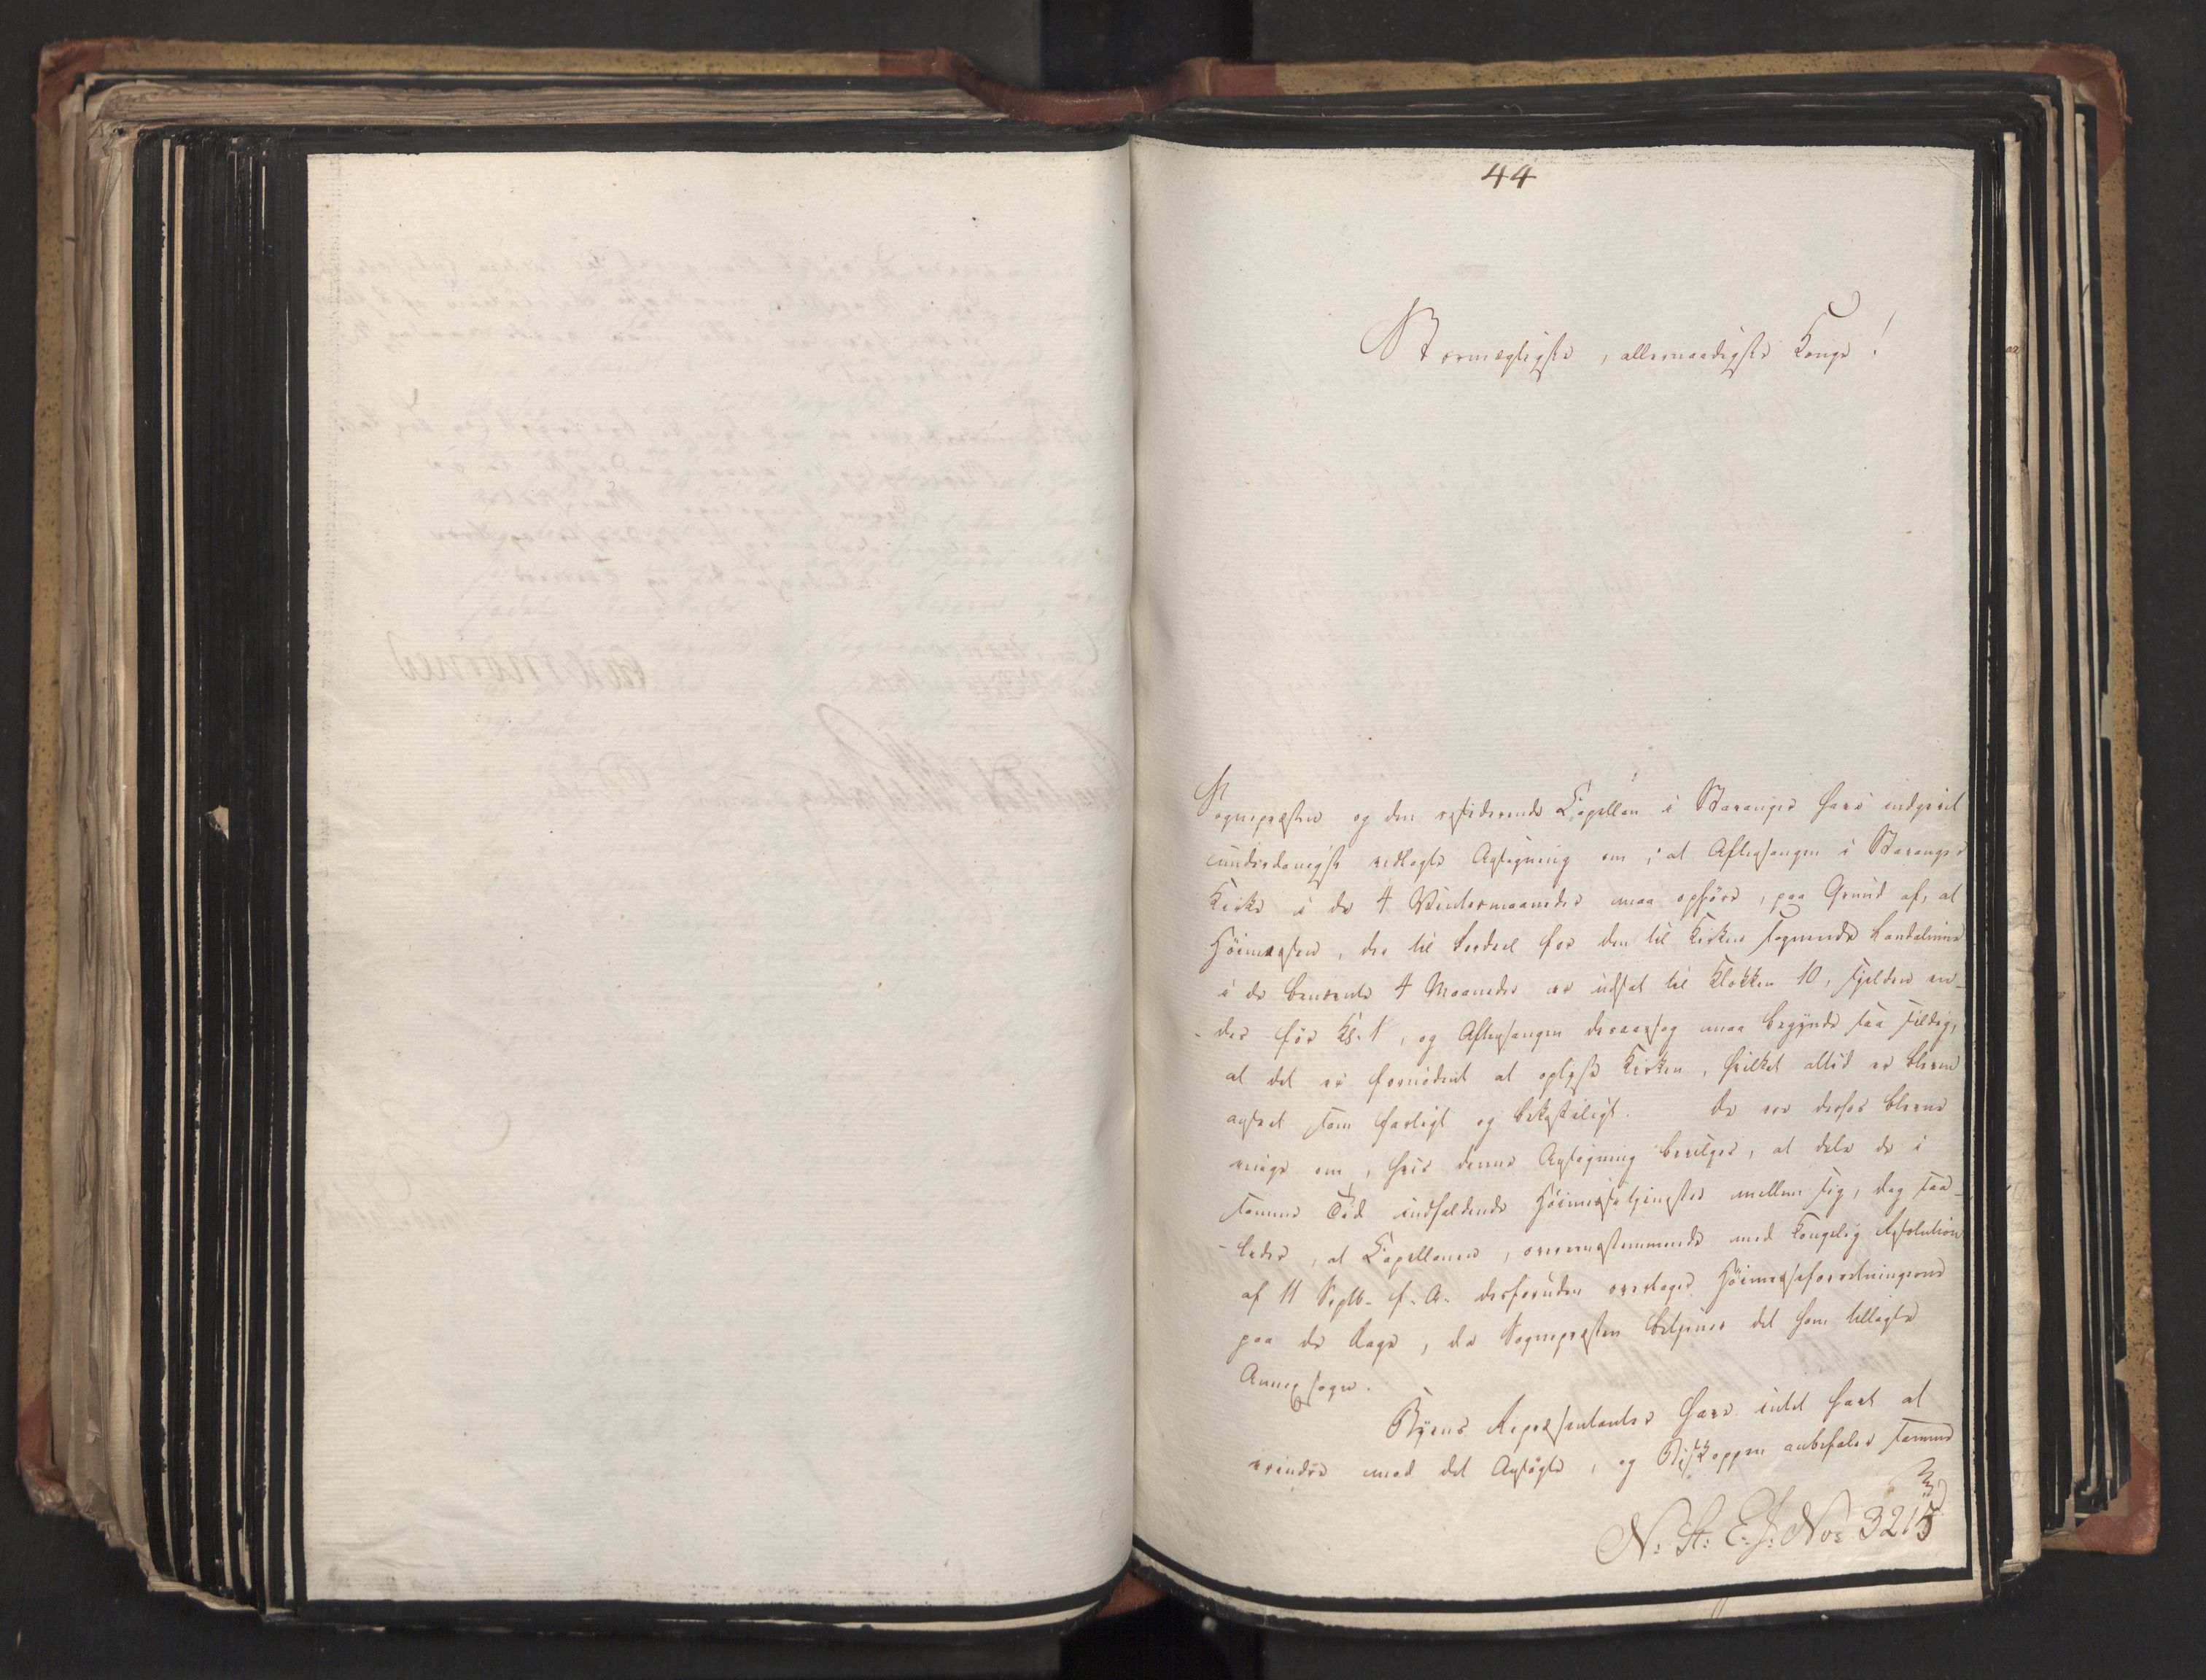 44
Stormægtigste, allernaadigste Konge!
Sognepræsten og den residerende Capellan i Stavanger have indgivet
underdanigst vedlagte Ansøgning om, at Aftensangen i Stavanger
Kirke i de 4 Vintermaaneder maa ophøre, paa Grund af, at
Høimessen, der til Fordeel for den til Kirken søgende Landalmue
i de benævnte 4 Maaneder er udsat til Klokken 10, sjelden en-
-der før Kl. 1, og Aftensangen derefter maa begynde saa sildig,
at det er fornødent at oplyse Kirken, hvilket altid er bleven
anseet som farligt og bekosteligt. De ere derfor blevne
enige om, hvis denne Ansøgning bevilges, at dele de i
samme Tid indfaldende Høimessetjenester mellem sig, dog saa-
-ledes, at Capellanen, overensstemmende med Kongelig Resolution
af 11 Septb. f. A. desforuden overtager Høimesseforretningerne
paa de Dage, da Sognepræsten betjener det ham tillagte
Annexsogn.
Byens Repræsentanter have intet havt at
erindre mod det Ansøgte, og Biskoppen anbefaler samme
N: St: E. J: No: 3215